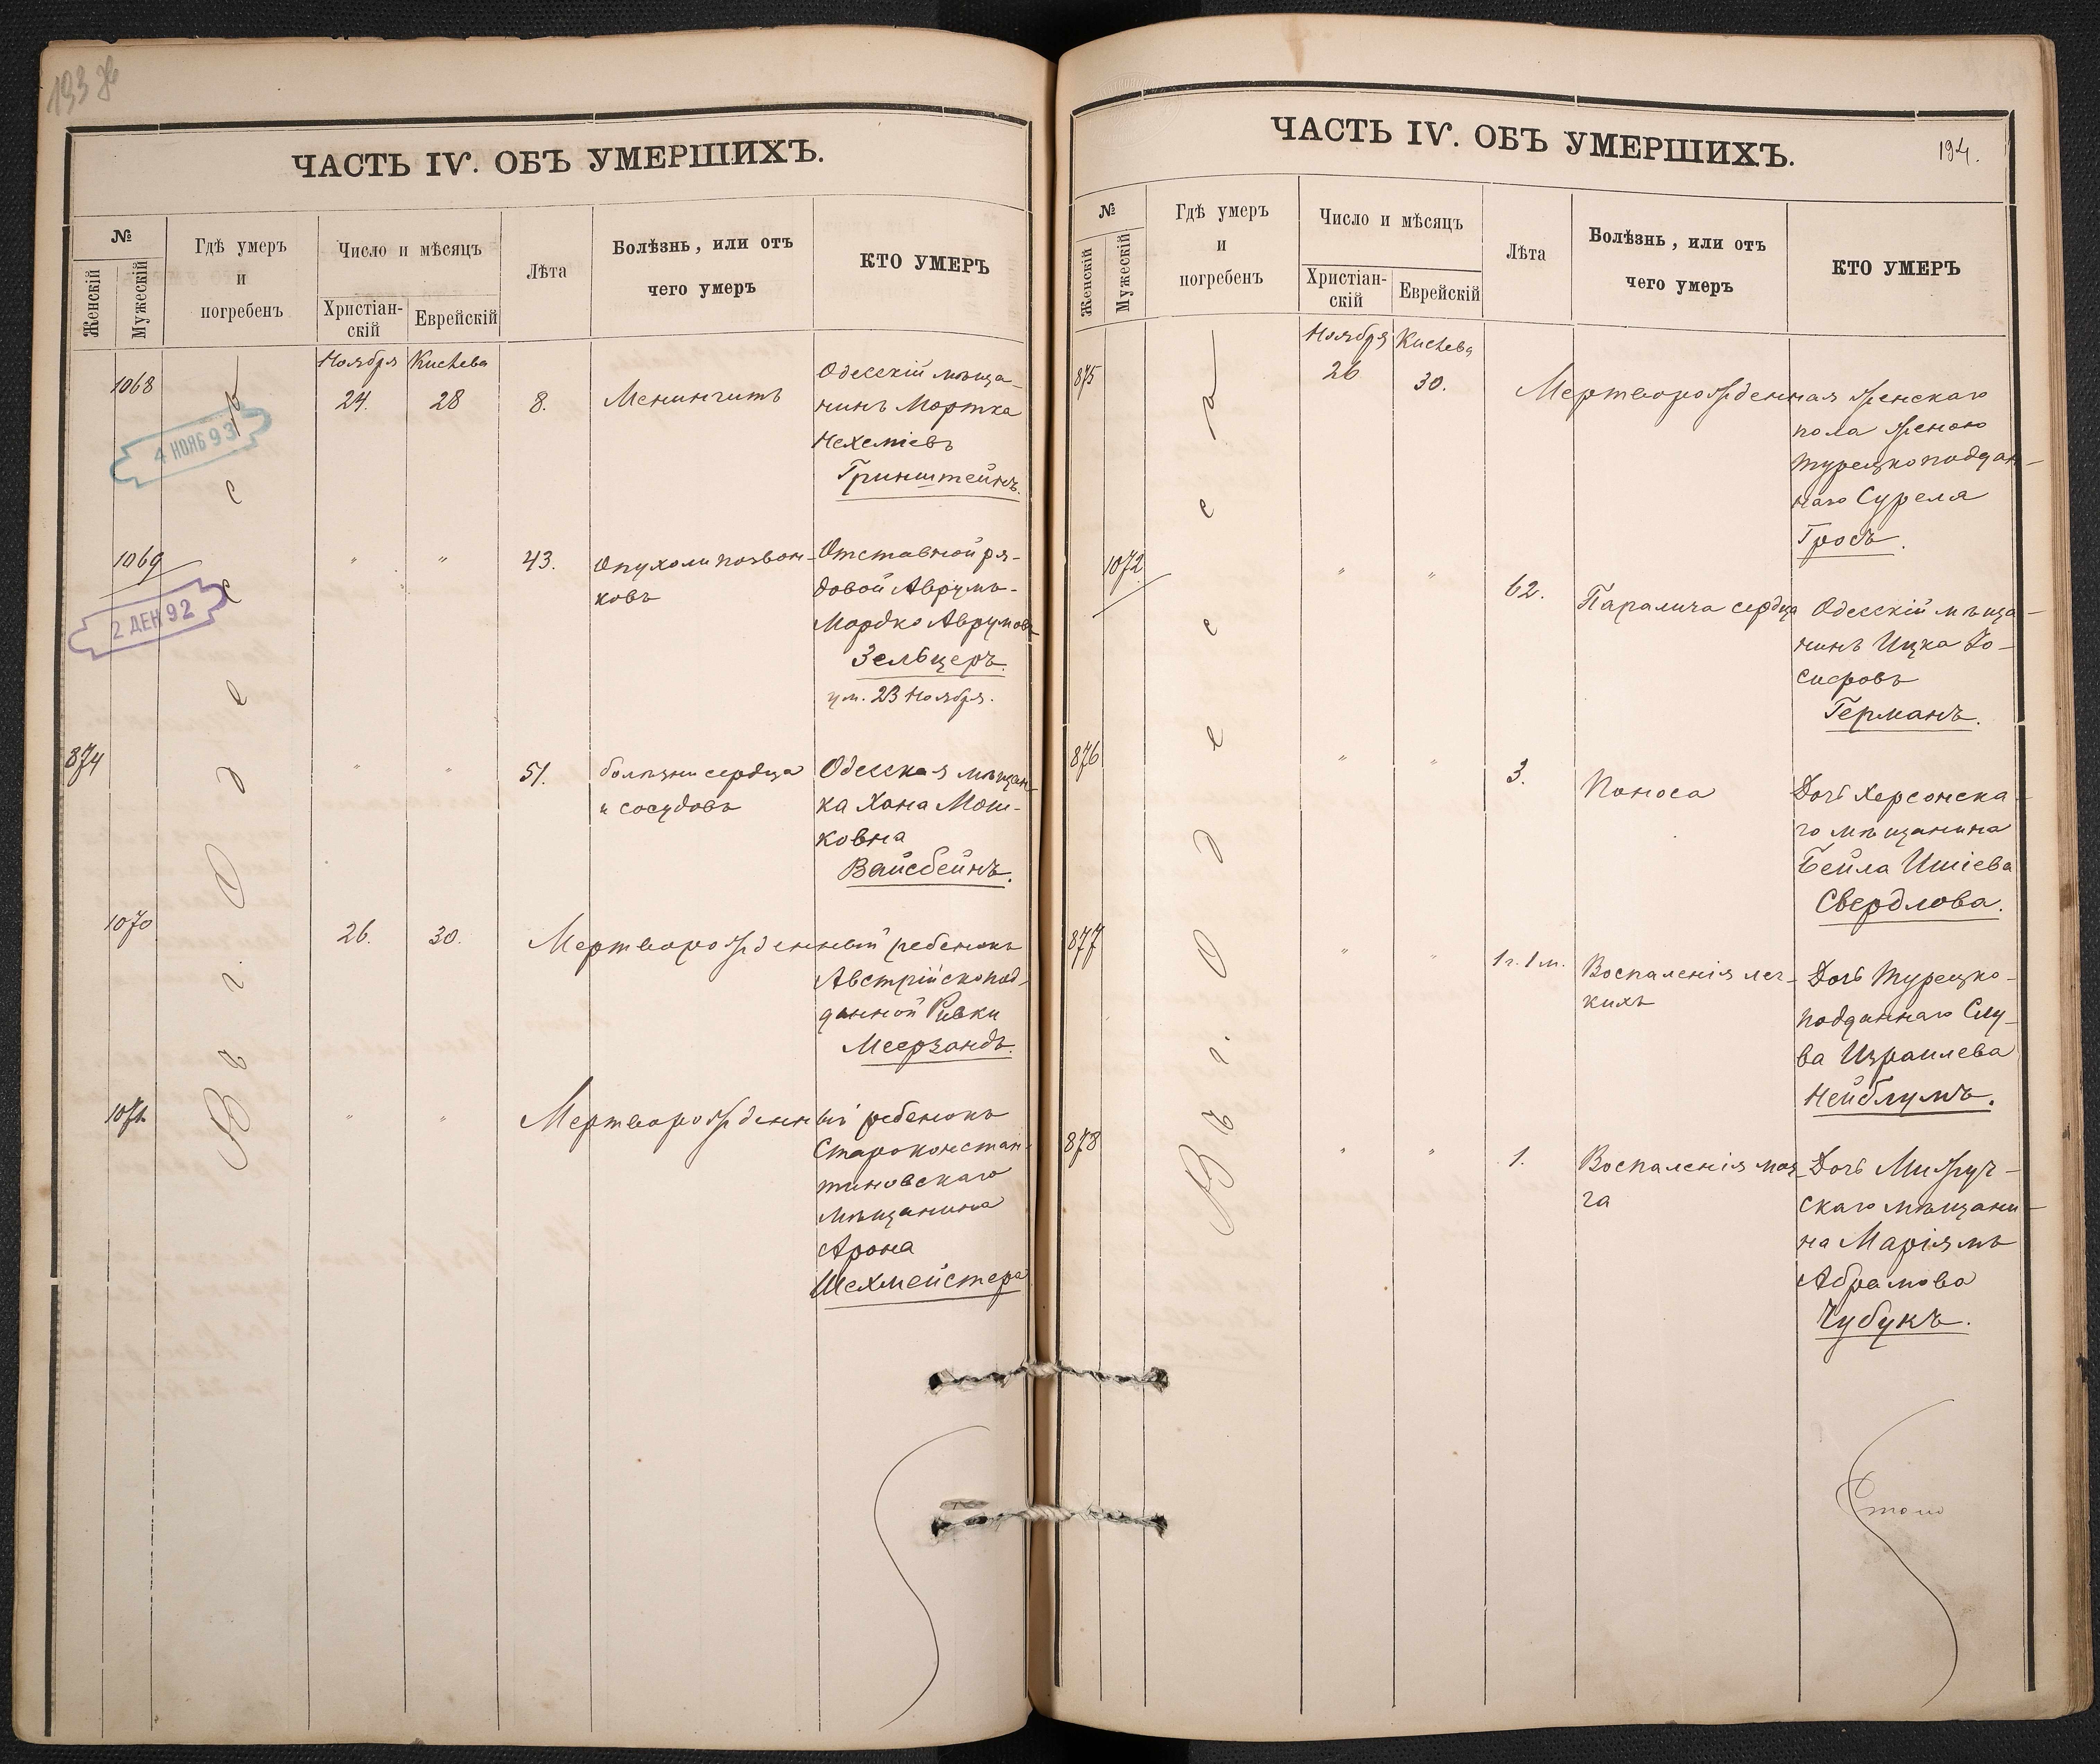 193 об
ЧАСТЬ IV. ОБЪ УМЕРШИХЪ.
№
Женскій
Мужескій
Гдѣ умеръ
и
погребенъ
Число и мѣсяцъ
Христіан-
скій
Еврейскій
Лѣта
Болѣзнь, или отъ
чего умеръ
КТО УМЕРЪ
Въ г. Одессѣ
Ноября Кислева
1068 24. 28 8. Менингитъ
Одесскій мѣща-
нинъ Мортка
Нехеміевъ
Гринштейнъ.
4 НОЯБ 93
1069 " " 43. Опухоли позвон-
ковъ
Отставной ря-
довой Аврумъ-
Мордко Аврумовъ
Зельцеръ.
ум. 23 Ноября.
2 ДЕК 92
874 " " 51. болѣзни сердца
и сосудовъ
Одесская мѣщан-
ка Хана Мош-
ковна
Вайсбейнъ.
1070 26. 30. Мертворожденный ребенокъ
Австрійскопод-
данной Ривки
Меерзандъ.
1071. " " Мертворожденный ребенокъ
Староконстан-
тиновскаго
мѣщанина
Арона
Шехмейстера
ЧАСТЬ IV. ОБЪ УМЕРШИХЪ.
194.
№
Женскій
Мужескій
Гдѣ умеръ
и
погребенъ
Число и мѣсяцъ
Христіан-
скій
Еврейскій
Лѣта
Болѣзнь, или отъ
чего умеръ
КТО УМЕРЪ
Въ г. Одесса
Ноября Кислева
875 26 30. Мертворожденная женскаго
пола женою
турецкоподдан-
наго Сурела
Гросъ.
1072 " " 62. Паралича сердца
Одесскій мѣща-
нинъ Ицка Іо-
сифовъ
Германъ.
876 " " 3. Поноса
Дочь Херсонска-
го мѣщанина
Бейла Ишіева
Свердлова.
877 " " 1 г. 1 м. Воспаленія лег-
кихъ
Дочь Турецко-
подданнаго Слу-
ва Израилева
Нейблумъ.
878 " " 1. Воспаленія моз-
га
Дочь Мижуч-
скаго мѣщани-
на Маріямъ
Абрамова
Чубукъ.